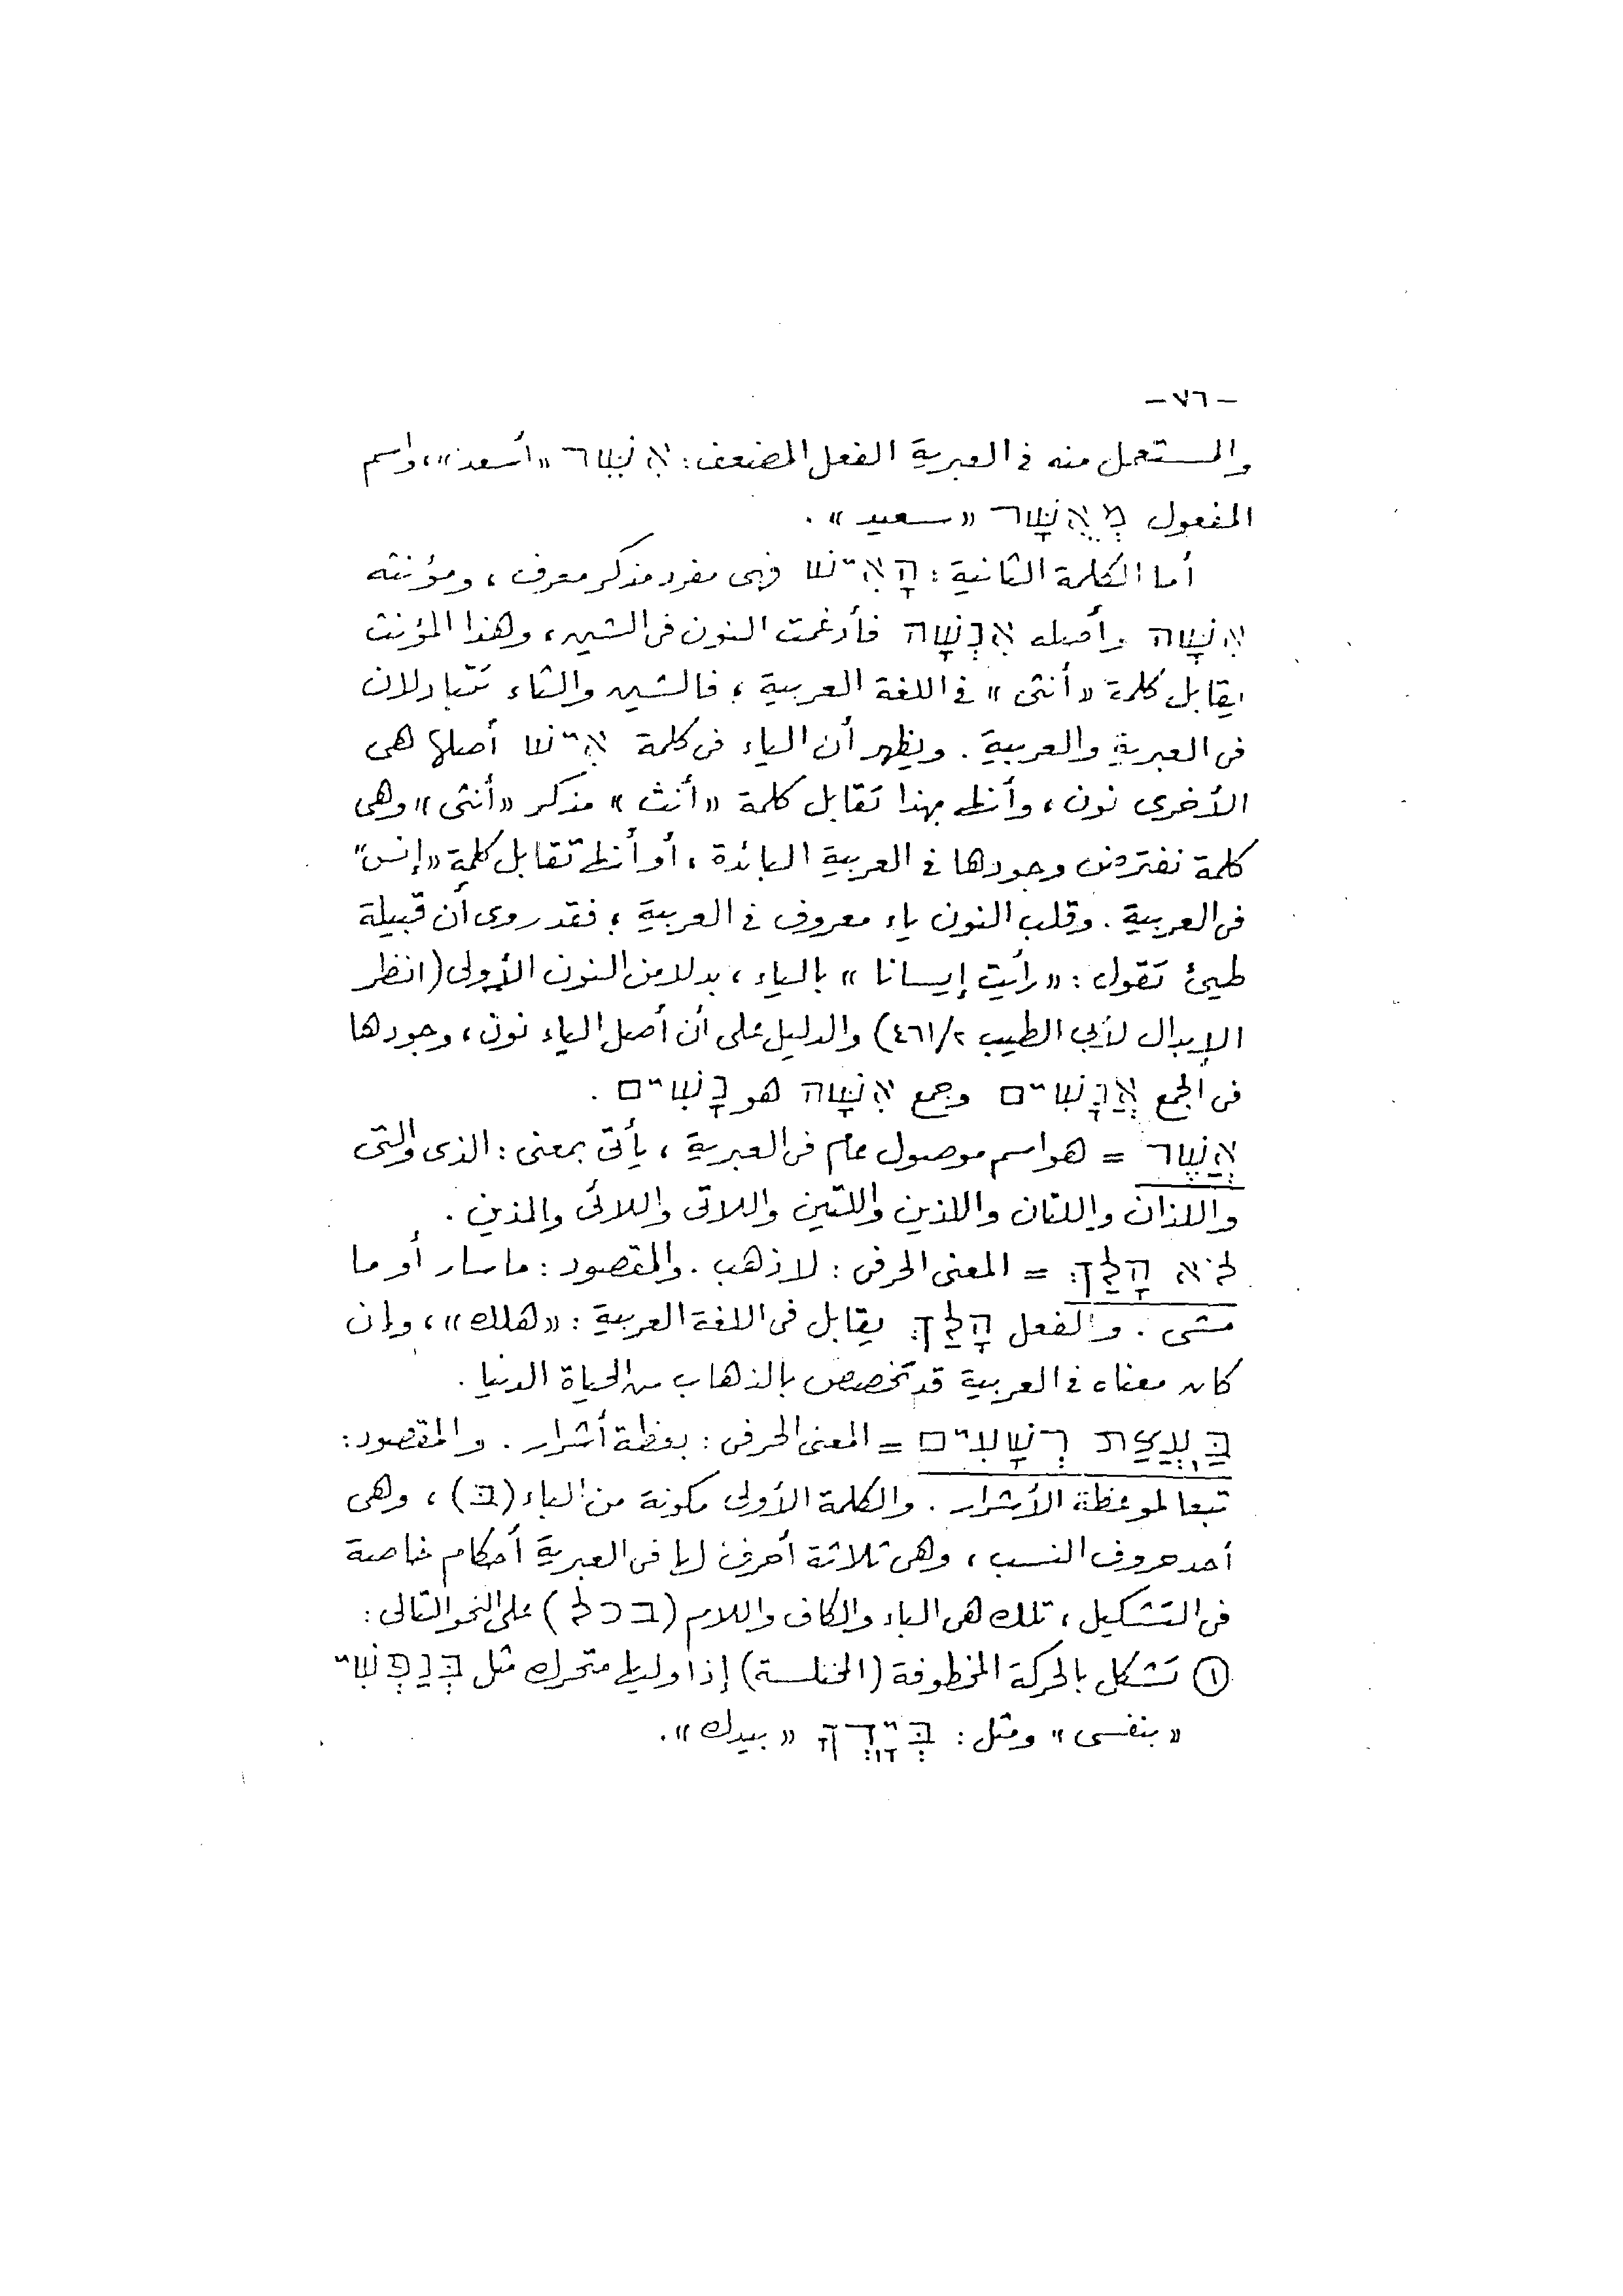 - ٧٦ -
والمستعمل منه فى العبرية الفعل المضعف: אִשֵּׁר «أسعد»، واسم
المفعول מְאֻשָּׁר «سعيد» .
أما الكلمة الثانية: הָאִישׁ فهى مفرد مذكر معرف، ومؤنثه
אִשָּׁה وأصله אִנְשָׁה فأدغمت النون فى الشين، وهذا المؤنث
يقابل كلمة «أنثى» فى اللغة العربية؛ فالشين والثاء تتبادلان
فى العبرية والعربية. ويظهر أن الياء فى كلمة אִישׁ أصلها هى
الأخرى نون، وأنها بهذا تقابل كلمة «أنث» مذكر «أنثى» وهى
كلمة نفترض وجودها فى العربية البائدة، أو أنها تقابل كلمة «إنس»
فى العربية. وقلب النون ياء معروف فى العربية؛ فقد روى أن قبيلة
طيئ تقول: «رأيت إيسانا» بالياء، بدلا من النون الأولى (انظر
الإبدال لأبى الطيب ٢/٤٦١) والدليل على أن أصل الياء نون، وجودها
فى الجمع אֲנָשִׁים وجمع אִשָּׁה هو נָשִׁים .
אֲשֶׁר = هو اسم موصول عام فى العبرية، يأتى بمعنى: الذى والتى
واللذان واللتان واللذين واللتين واللاتى واللائى والذين .
לֹא הָלַךְ = المعنى الحرفى: لا ذهب. والمقصود: ما سار أو ما
مشى . والفعل הָלַךְ يقابل فى اللغة العربية: «هلك»، وإن
كان معناه فى العربية قد تخصص بالذهاب من الحياة الدنيا .
בַּעֲצַת רְשָׁעִים = المعنى الحرفى: بعظة أشرار. والمقصود:
تبعا لموعظة الأشرار. والكلمة الأولى مكونة من الباء (בּ)، وهى
أحد حروف النسب، وهى ثلاثة أحرف لها فى العبرية أحكام خاصة
فى التشكيل، تلك هى الباء والكاف واللام (בכל) على النحو التالى:
① تشكل بالحركة المخطوفة (المختلسة) إذا وليها متحرك مثل בְּנַפְשִׁי
«بنفسى» ومثل: בְּיָדְךָ «بيدك».